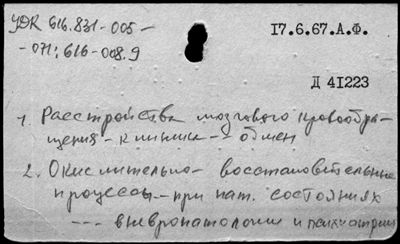 УДК 616.831-005-
-071; 616-008.9
17.6.67.А.Ф.
Д 41223
1. Расстройства мозгового кровообра-
щения - клиника -- обмен
2. Окислительно- восстановительные
процессы - при пат. состояниях
--- в невропатологии и психиатрии